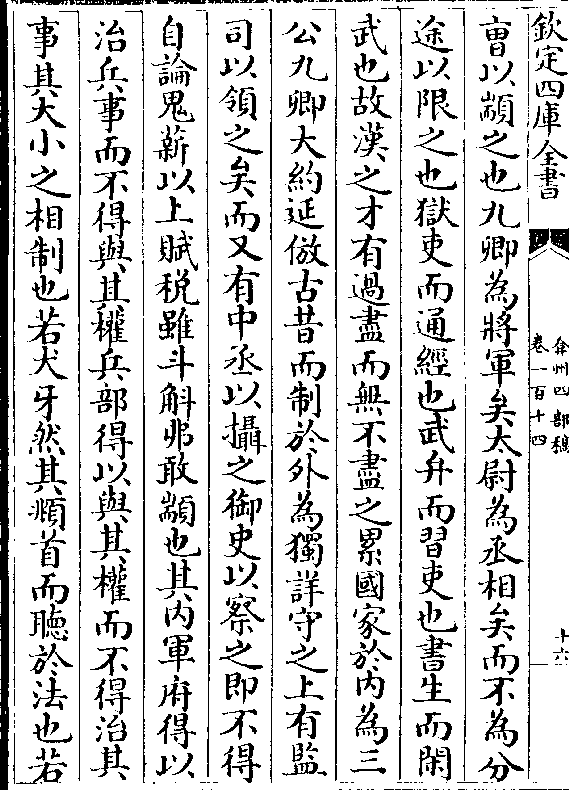 欽定四庫全書
弇州四部稿
卷一百十四
十六
曹以顓之也九卿為將軍矣太尉為丞相矣而不為分
途以限之也獄吏而通經也武弁而習吏也書生而閑
武也故漢之才有過盡而無不盡之累國家於内為三
公九卿大約延倣古昔而制於外為獨詳守之上有監
司以領之矣而又有中丞以攝之御史以察之即不得
自論鬼薪以上賦税雖斗斛弗敢顓也其内軍府得以
治兵事而不得與其權兵部得以與其權而不得治其
事其大小之相制也若犬牙然其頫首而聽於法也若